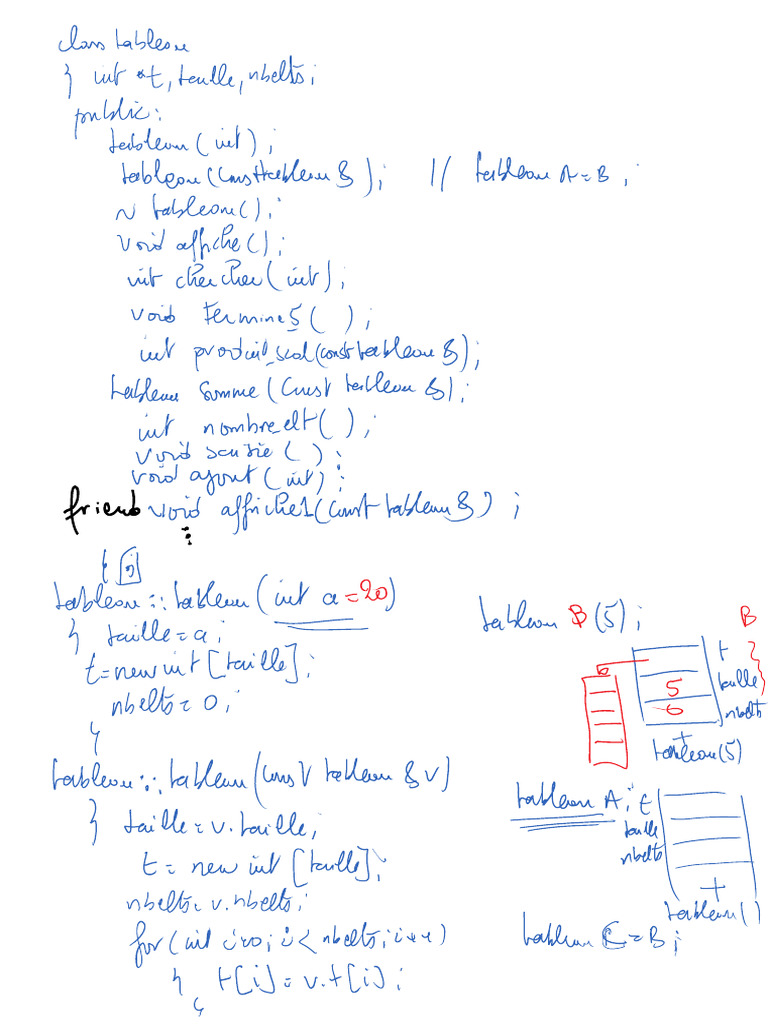 class tableau
{ int *t, taille, nbelts;
public:
tableau(int);
tableau(const tableau &); // tableau A=B;
~ tableau();
void affiche();
int chercher(int);
void termine5( );
int produit_scal(const tableau &);
tableau somme(const tableau &);
int nombre_elt( );
void saisie( );
void ajout(int);
friend void affiche1(const tableau &);
};
tableau::tableau(int a=20)
{ taille=a;
t=new int[taille];
nbelts=0;
}
tableau::tableau(const tableau &v)
{ taille=v.taille;
t= new int[taille];
nbelts=v.nbelts;
for(int i=0; i<nbelts; i++)
{ t[i]=v.t[i];
}
tableau B(5); B
t
5 taille
0 nbelts
+
tableau(5)
tableau A; t
taille
nbelts
+
tableau()
tableau C=B;